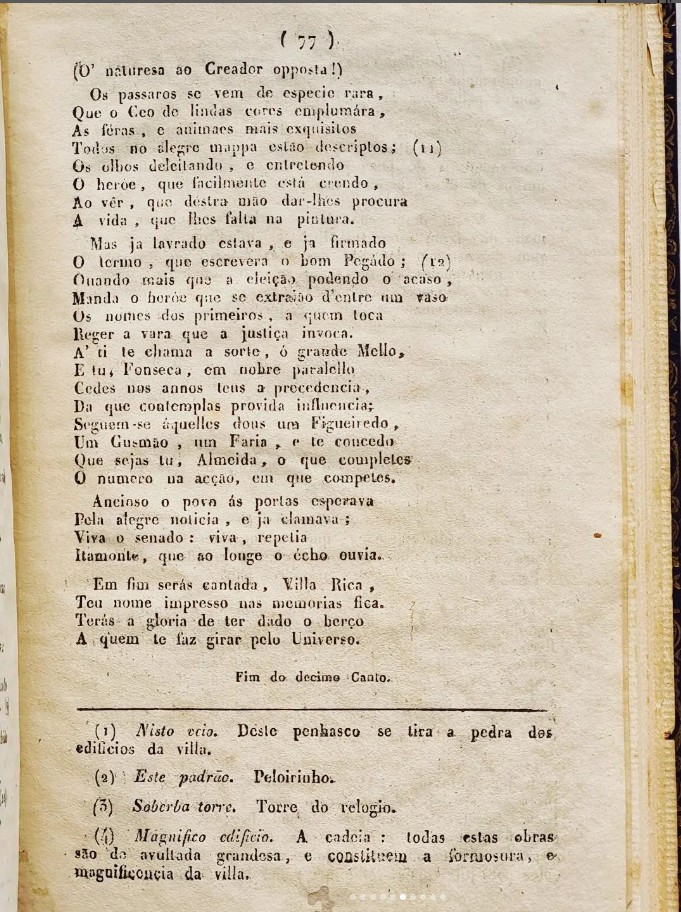 ( 77 )
(O' naturesa ao Creador opposta!)
Os passaros se vem de especie rara,
Que o Ceo de lindas cores emplumára,
As féras, e animaes mais exquisitos
Todos no alegre mappa estão descriptos; (11)
Os olhos deleitando, e entretendo
O heróe, que facilmente está crendo,
Ao vêr, que déstra mão dar-lhes procura
A vida, que lhes falta na pintura.
Mas ja lavrado estava, e ja firmado
O termo, que escrevera o bom Pegádo; (12)
Quando mais que a eleição podendo o acaso,
Manda o heróe que se extraião d'entre um vaso
Os nomes dos primeiros, a quem toca
Reger a vara que a justiça invoca.
A' ti te chama a sorte, ó grande Mello,
E tu, Fonseca, em nobre paralello
Cedes nos annos teus a precedencia,
Da que contemplas provida influencia;
Seguem-se áquelles dous um Figueiredo,
Um Gusmão, um Faria, e te concedo
Que sejas tu, Almeida, o que completes
O numero na acção, em que competes.
Ancioso o povo ás portas esperava
Pela alegre noticia, e ja clamava;
Viva o senado: viva, repetia
Itamonte, que ao longe o écho ouvia.
Em fim serás cantada, Villa Rica,
Teu nome impresso nas memorias fica.
Terás a gloria de ter dado o berço
A quem te faz girar pelo Universo.
Fim do decimo Canto.
(1) Nisto veio. Déste penhasco se tira a pedra dos
edificios da villa.
(2) Este padrão. Peloirinho.
(3) Soberba torre. Torre do relogio.
(4) Magnifico edificio. A cadeia: todas estas obras
são de avultada grandesa, e constituem a formosura, e
magnificencia da villa.